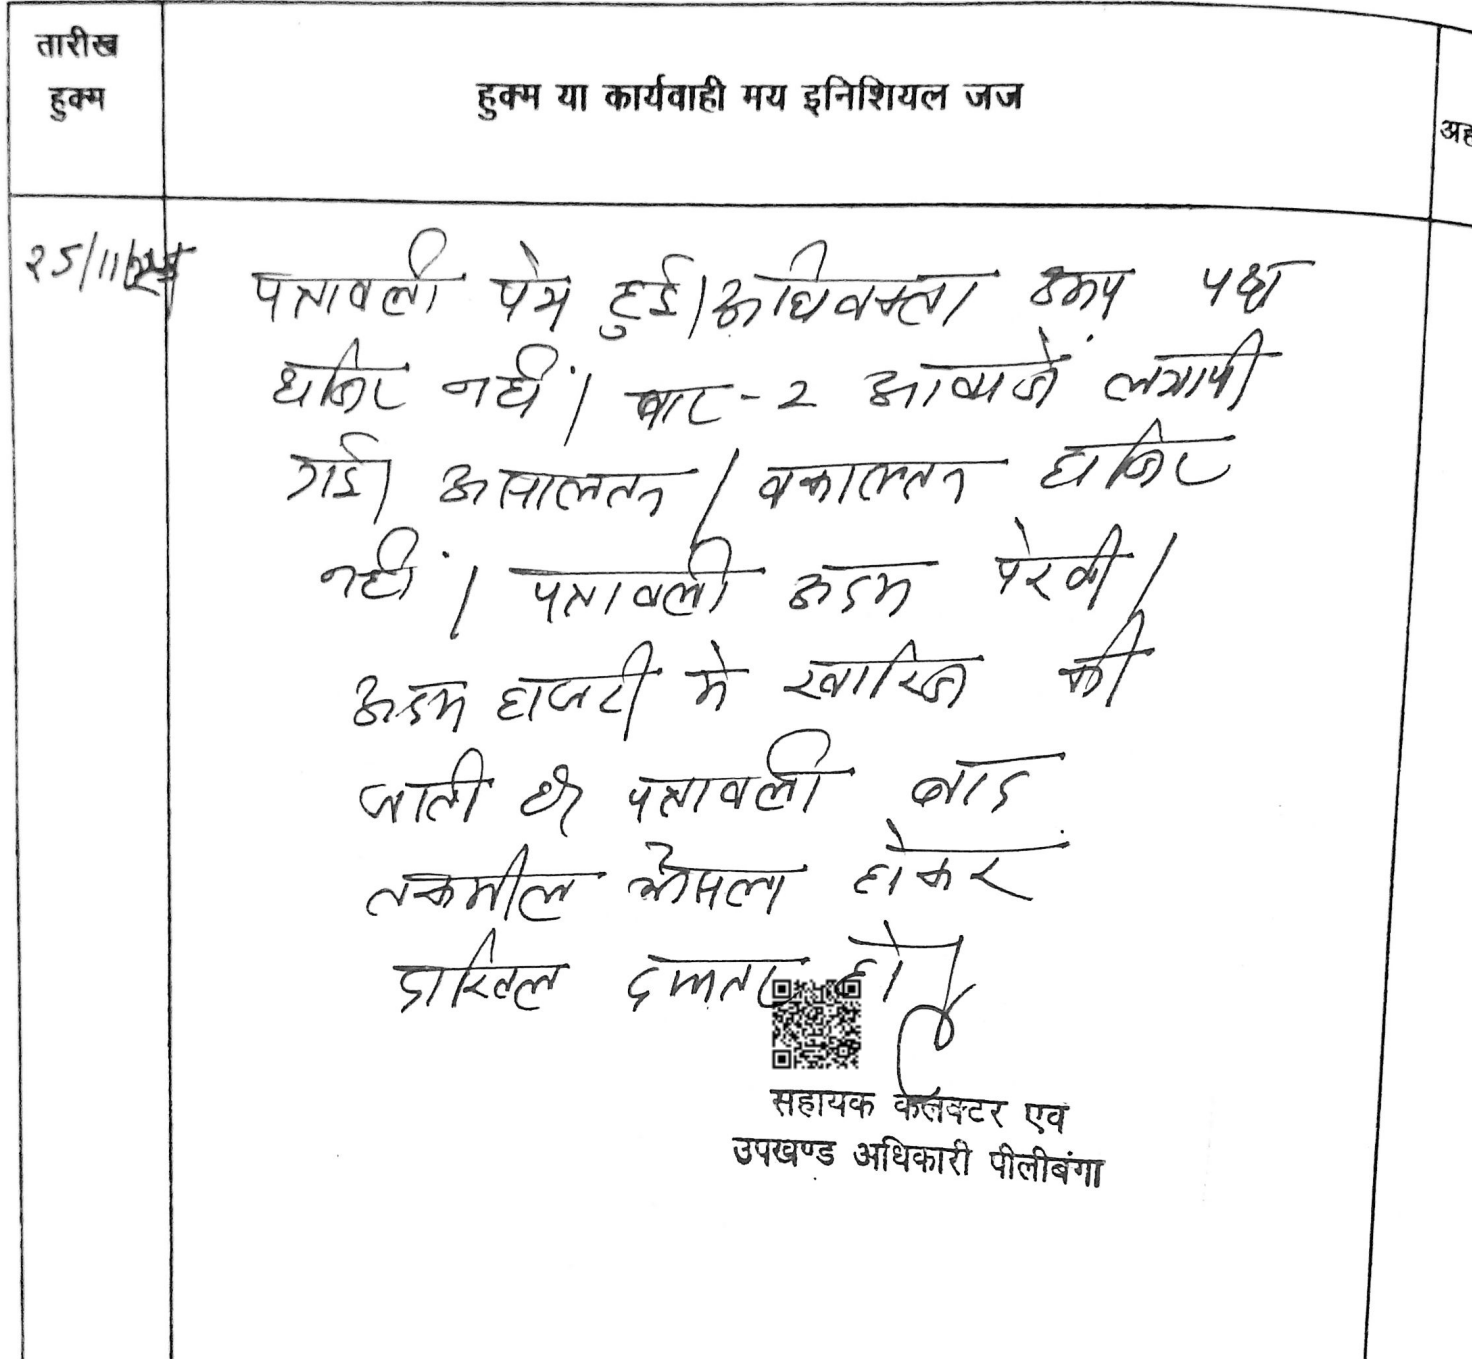 तारीख
हुक्म
हुक्म या कार्यवाही मय इनिशियल जज
अह
25/11/
पत्रावली पेश हुई। अधिवक्ता उभय पक्ष
हाजिर नहीं। बार-2 आवाजें लगायी
गई। असालतन / वकालतन हाजिर
नहीं। पत्रावली अदम पैरवी /
अदम हाजरी में खारिज की
जाती है। पत्रावली बाद
तकमील फैसला होकर
दाखिल दफ्तर हो।
सहायक कलक्टर एवं
उपखण्ड अधिकारी पीलीबंगा